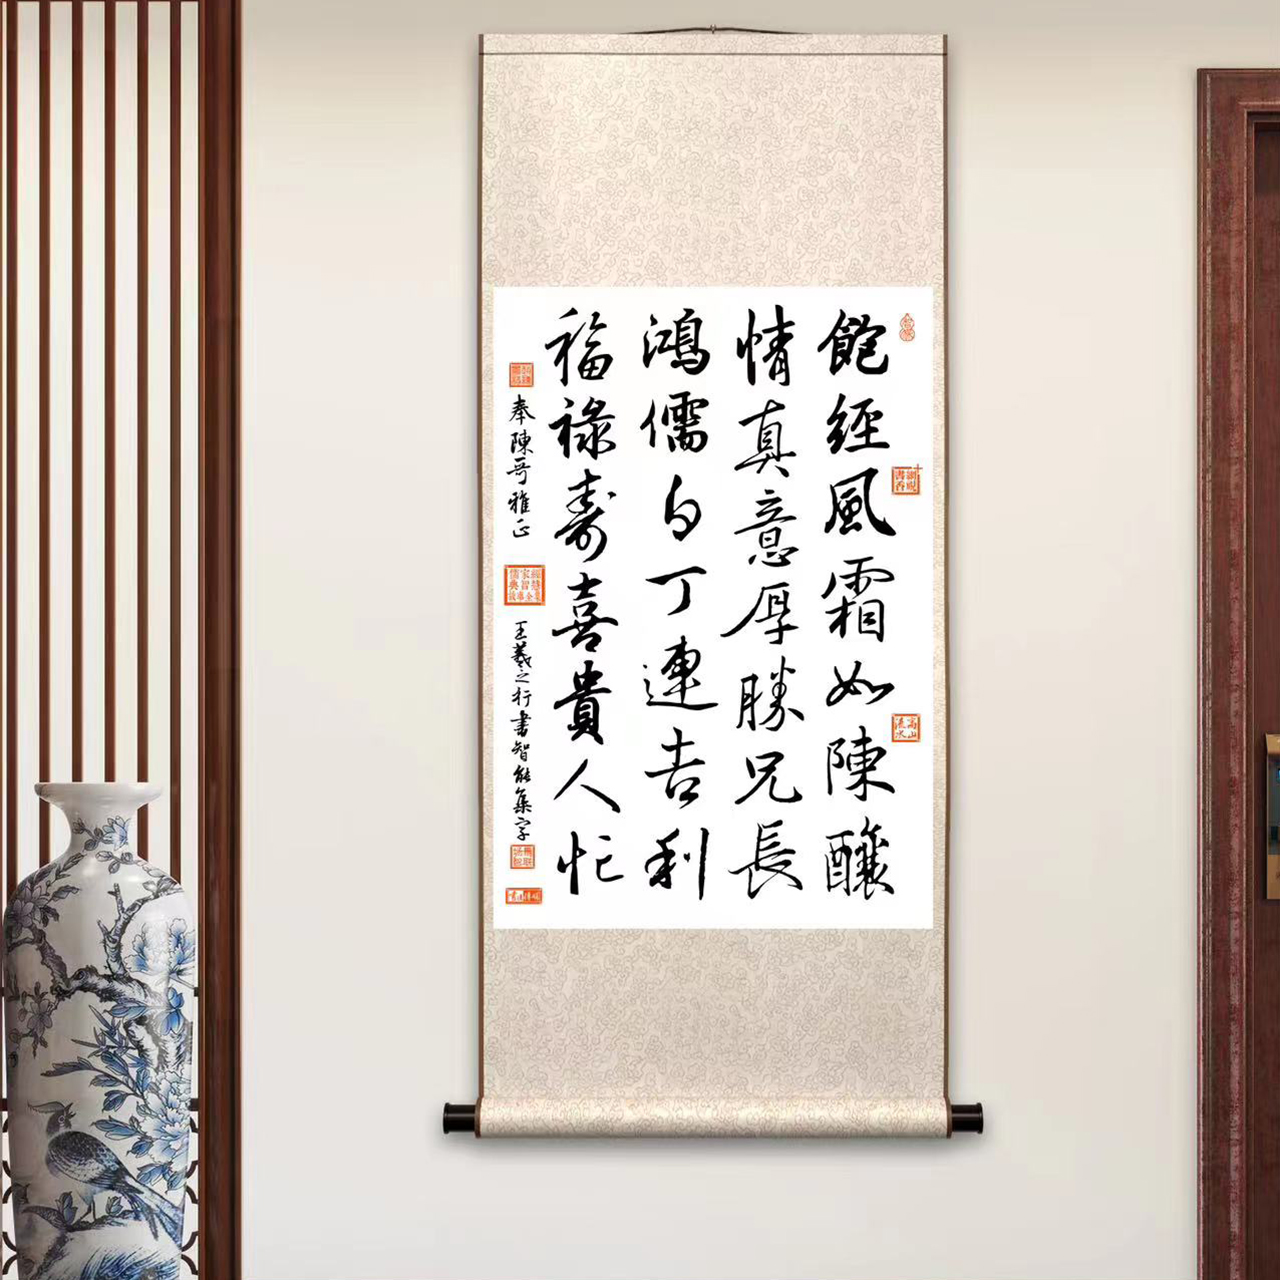 飽經風霜如陳釀
情真意厚勝兄長
鴻儒白丁連吉利
福祿壽喜貴人忙
奉陳哥雅正
王羲之行書智能集字
瀏覽書香
高山流水